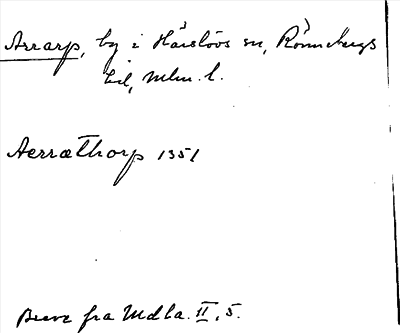 Arrarp, by i Härslövs sn, Rönnebergs
hd, Mlm. l.
Aerræthorp 1351
Breve fra Mdla. II, 5.